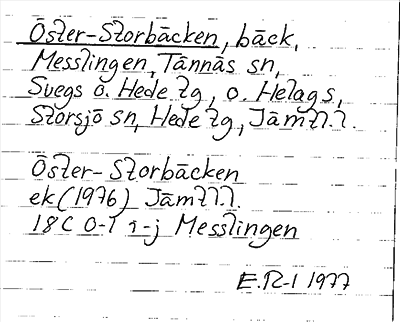 Öster-Storbäcken, bäck,
Messlingen, Tännäs sn,
Svegs o. Hede tg, o. Helags,
Storsjö sn, Hede tg, Jämtl.
Öster-Storbäcken
ek (1976) Jämtl.
18C 0-1 i-j Messlingen
E.R-l 1977